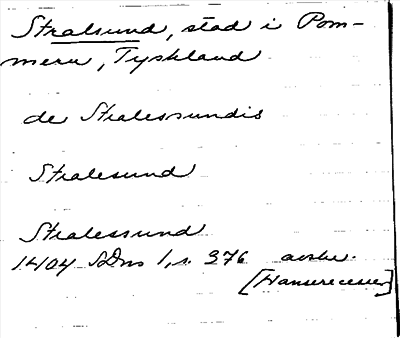 Stralsund, stad i Pom-
mern, Tyskland
de Stralessundis
Stralesund
Stralessund
1404 SDns 1, s. 376 avskr.
[Hanserecesser]